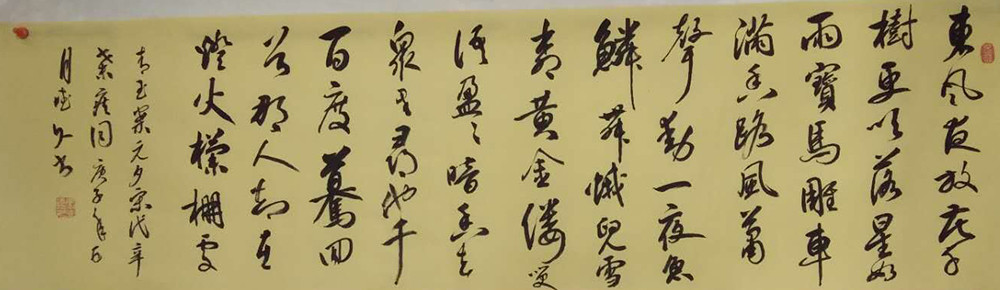 東風夜放花千
樹更吹落星如
雨寶馬雕車
滿香路風蕭
聲動一夜魚
鱗舞蛾兒雪
柳黃金縷笑
語盈〻暗香去
衆里尋他千
百度驀回
首那人却在
燈火欄柵處
青玉案元夕宋代辛
棄疾詞庚子年五
月書